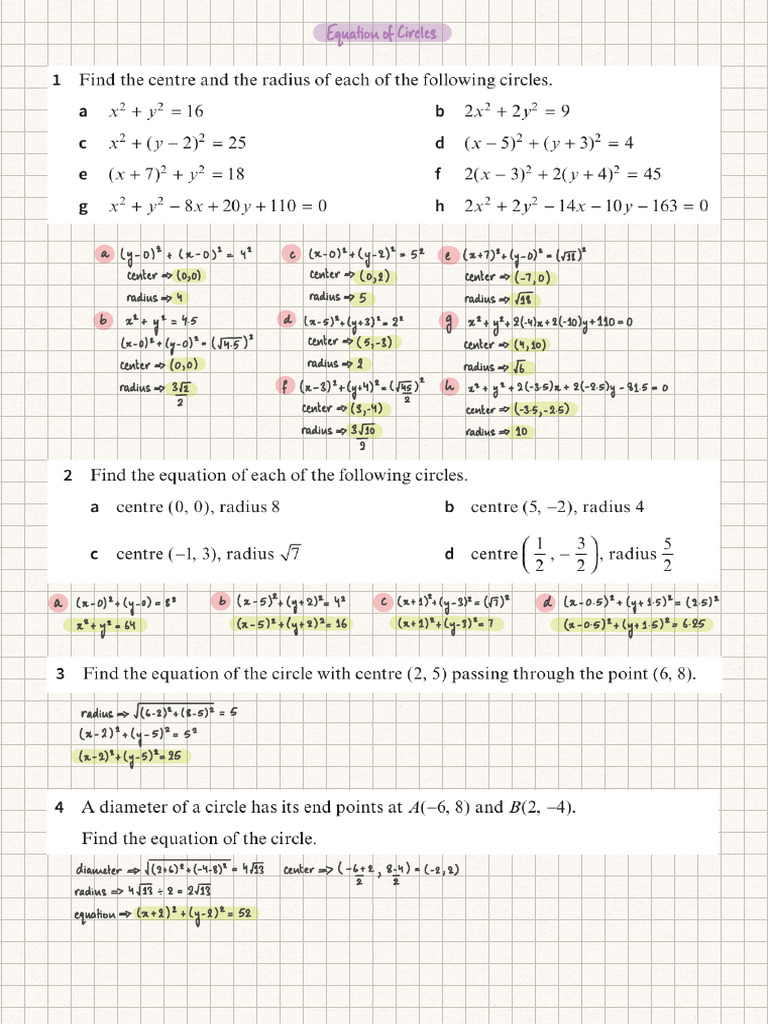 Equation of Circles
1 Find the centre and the radius of each of the following circles.
a x² + y² = 16
b 2x² + 2y² = 9
c x² + (y − 2)² = 25
d (x − 5)² + (y + 3)² = 4
e (x + 7)² + y² = 18
f 2(x − 3)² + 2(y + 4)² = 45
g x² + y² − 8x + 20y + 110 = 0
h 2x² + 2y² − 14x − 10y − 163 = 0
a (y-0)² + (x-0)² = 4²
center ⇒ (0,0)
radius ⇒ 4
b x² + y² = 4.5
(x-0)² + (y-0)² = (√4.5)²
center ⇒ (0,0)
radius ⇒ 3√2/2
c (x-0)² + (y-2)² = 5²
center ⇒ (0,2)
radius ⇒ 5
d (x-5)² + (y+3)² = 2²
center ⇒ (5,-3)
radius ⇒ 2
f (x-3)² + (y+4)² = (√45/2)²
center ⇒ (3,-4)
radius ⇒ 3√10/2
e (x+7)² + (y-0)² = (√18)²
center ⇒ (-7,0)
radius ⇒ √18
g x² + y² + 2(-4)x + 2(-10)y + 110 = 0
center ⇒ (4,10)
radius ⇒ √6
h x² + y² + 2(-3.5)x + 2(-2.5)y - 81.5 = 0
center ⇒ (-3.5,-2.5)
radius ⇒ 10
2 Find the equation of each of the following circles.
a centre (0, 0), radius 8
b centre (5, −2), radius 4
c centre (−1, 3), radius √7
d centre (1/2, −3/2), radius 5/2
a (x-0)² + (y-0) = 8²
x² + y² = 64
b (x-5)² + (y+2)² = 4²
(x-5)² + (y+2)² = 16
c (x+1)² + (y-3)² = (√7)²
(x+1)² + (y-3)² = 7
d (x-0.5)² + (y+1.5)² = (2.5)²
(x-0.5)² + (y+1.5)² = 6.25
3 Find the equation of the circle with centre (2, 5) passing through the point (6, 8).
radius ⇒ √(6-2)² + (8-5)² = 5
(x-2)² + (y-5)² = 5²
(x-2)² + (y-5)² = 25
4 A diameter of a circle has its end points at A(−6, 8) and B(2, −4).
Find the equation of the circle.
diameter ⇒ √(2+6)² + (-4-8)² = 4√13 center ⇒ (-6+2/2, 8-4/2) = (-2,2)
radius ⇒ 4√13 ÷ 2 = 2√13
equation ⇒ (x+2)² + (y-2)² = 52